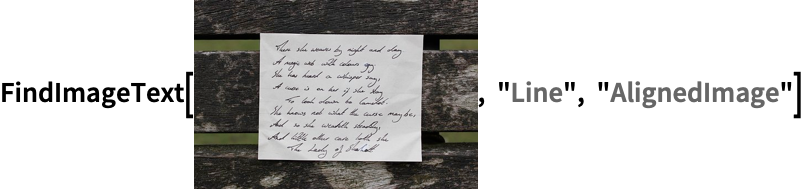 FindImageText[ , "Line", "AlignedImage"]
There she weaves by night and day
A magic web with colours gay.
She has heard a whisper say,
A curse is on her if she stay
To look down to Camelot.
She knows not what the curse may be,
And so she weaveth steadily,
And little other care hath she
The Lady of Shalott